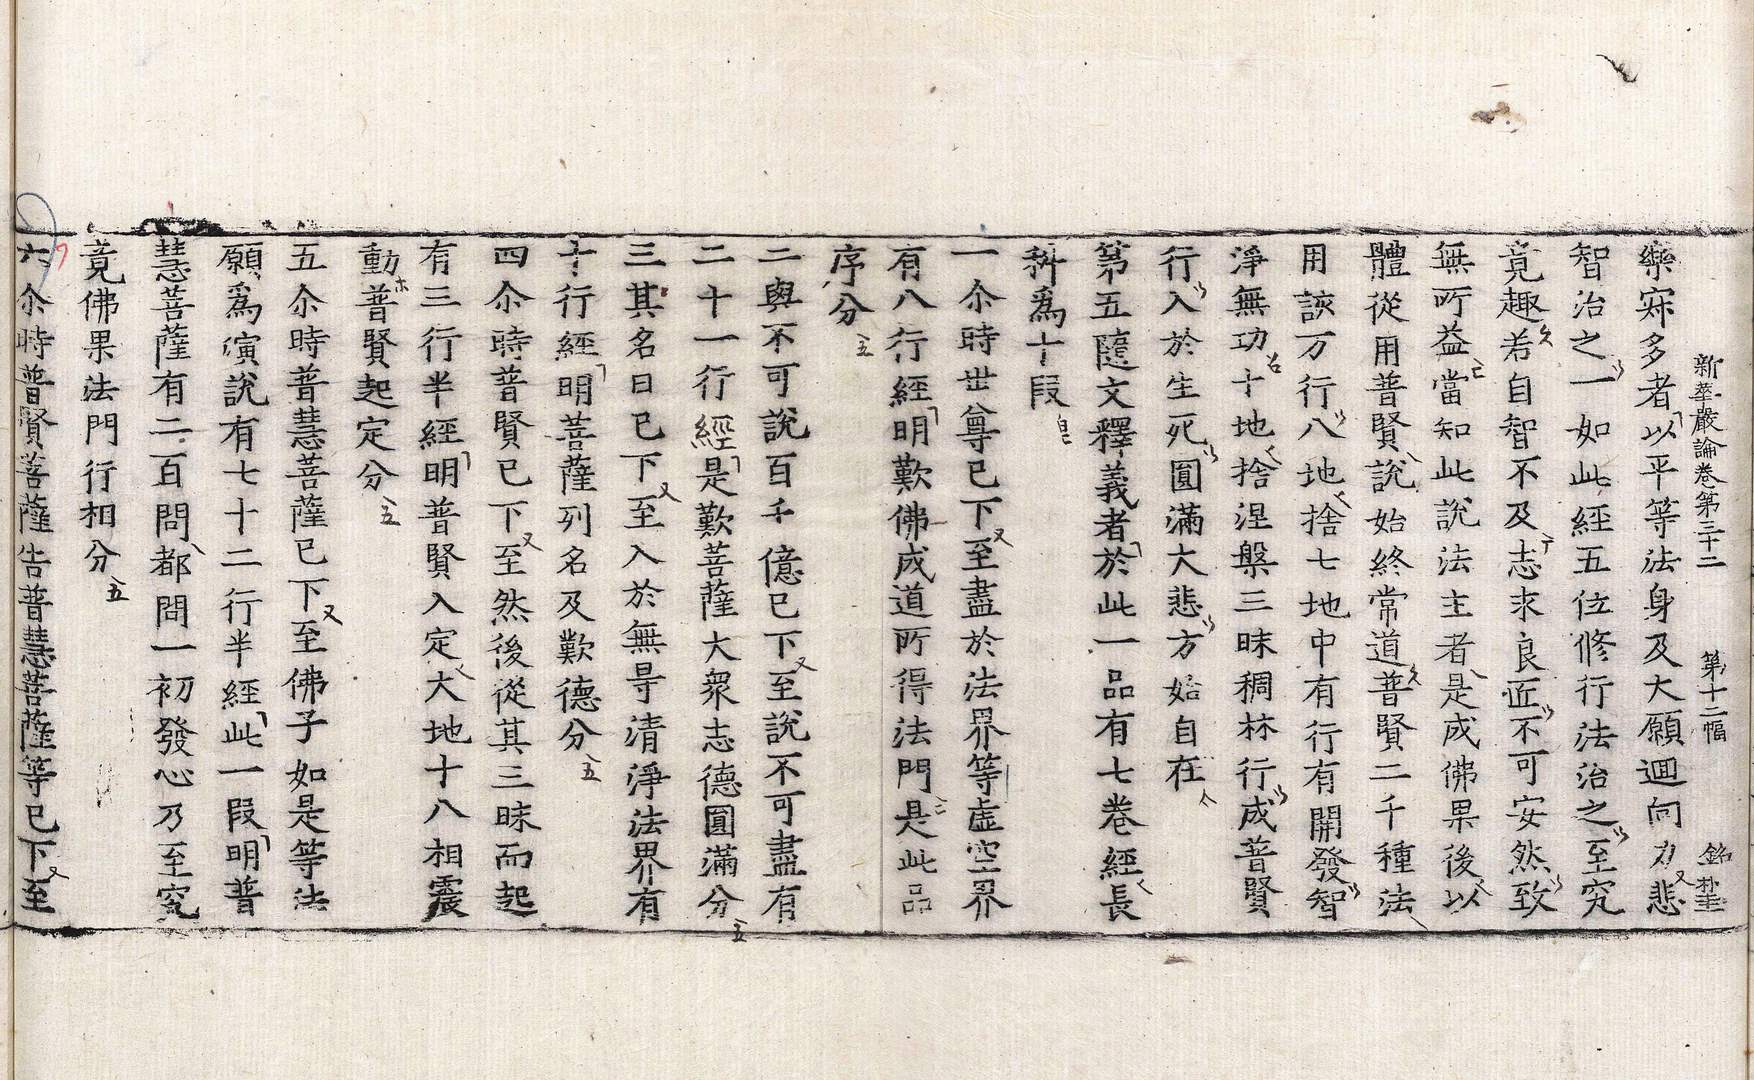 新華嚴論卷第三十二　第十二幅　銘林
樂寂多者以平等法身及大願迴向力悲
智治之一如此經五位修行法治之至究
竟趣若自智不及志求良匠不可安然致
無所益當知此說法主者是成佛果後以
體從用普賢說始終常道普賢二千種法
用該万行八地捨七地中有行有開發智
淨無功十地捨涅槃三昧稠林行成普賢
行入於生死圓滿大悲方始自在
第五隨文釋義者於此一品有七卷經長
科爲十段
一尒時世尊已下至盡於法界等虛空界
有八行經明歎佛成道所得法門是此品
序分
二與不可說百千億已下至說不可盡有
二十一行經是歎菩薩大衆志德圓滿分
三其名曰已下至入於無㝵清淨法界有
十行經明菩薩列名及歎德分
四尒時普賢已下至然後從其三昧而起
有三行半經明普賢入定大地十八相震
動普賢起定分
五尒時普慧菩薩已下至佛子如是等法
願爲演說有七十二行半經此一段明普
慧菩薩有二百問都問一初發心乃至究
竟佛果法門行相分
六尒時普賢菩薩告普慧菩薩等已下至